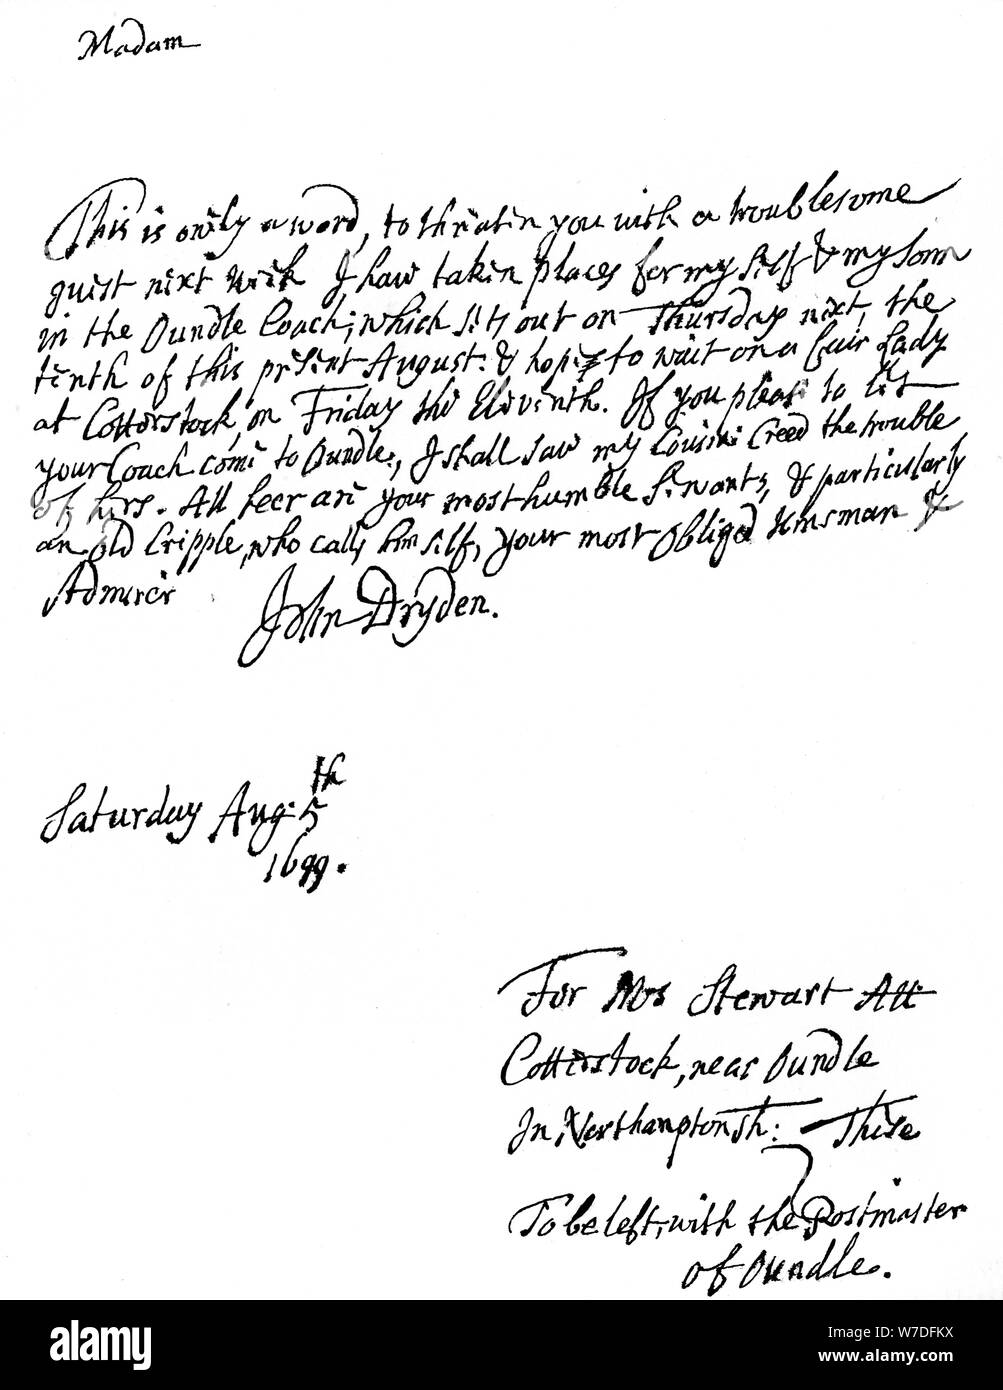 Madam
This is only a word, to threaten you with a troublesome
guest next week I have taken places for my self & my sonn
in the Oundle Coach; which sets out on Thursday next, the
tenth of this present August: & hope to wait on a fair Lady
at Cotterstock, on Friday the Eleventh. If you please to let
your Coach come to Oundle, I shall save my Cousine Creed the trouble
of hers. All heer are your most humble Servants, & particularly
an old Cripple, who calls him self, your most obliged Kinsman &
Admirer
John Dryden.
Saturday Aug: 5th
1699.
For Mrs Stewart Att
Cotterstock, near Oundle
In Northamptonsh: These
To be left, with the Postmaster
of Oundle.
alamy
Image ID: W7DFKX
www.alamy.com